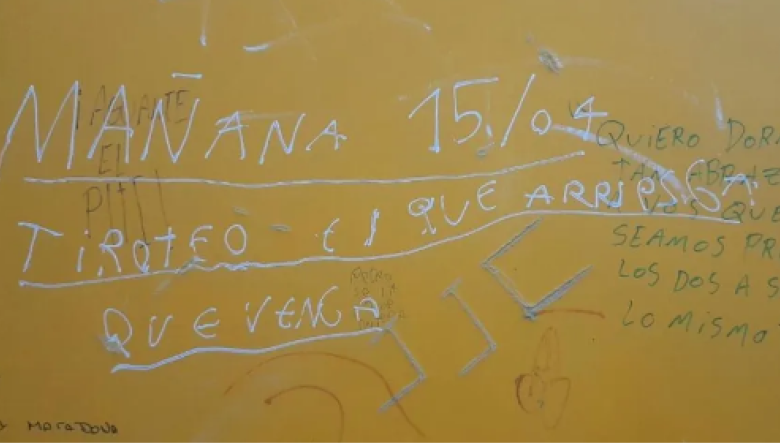 MAÑANA 15/04
TIROTEO - El QUE ARRIESGA
QUE VENGA
AGUANTE
EL
PITI
QUIERO DOR
TAN ABRAZ
VOS QUE
SEAMOS PR
LOS DOS A S
LO MISMO
JJC
MARADONA